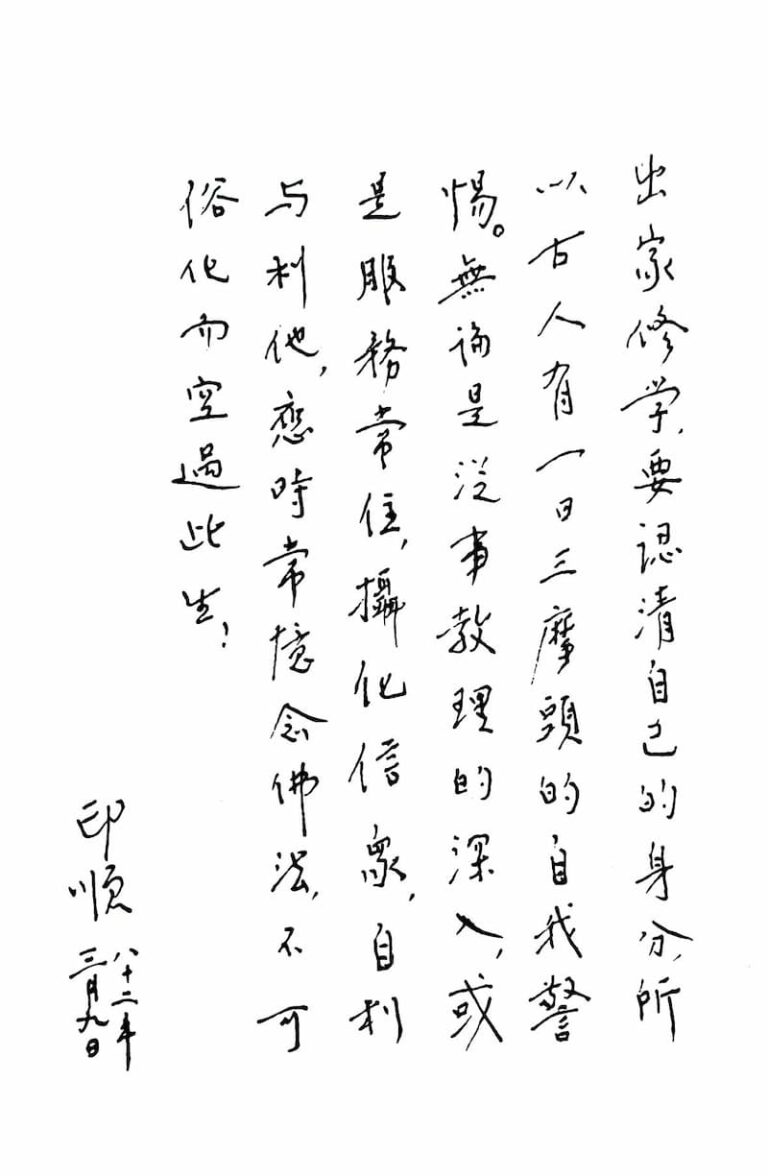 出家修学,要認清自己的身分,所
以古人有一日三摩頭的自我警
惕。無論是從事教理的深入,或
是服務常住,攝化信眾,自利
与利他,應時常憶念佛法,不可
俗化而空過此生!
印順
八十二年
三月九日